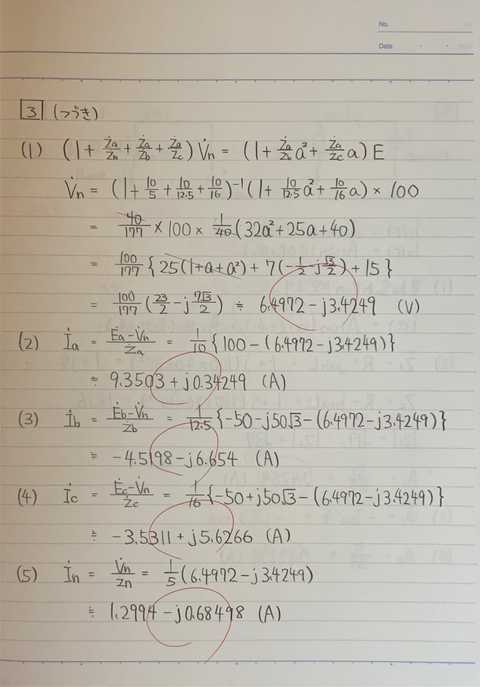 No.
Date
3 (つづき)
(1) (1 + Ża/Żn + Ża/Żb + Ża/Żc) V̇n = (1 + Ża/Żb a² + Ża/Żc a) E
V̇n = (1 + 10/5 + 10/12.5 + 10/16)⁻¹ (1 + 10/12.5 a² + 10/16 a) × 100
= 40/177 × 100 × 1/40 (32a² + 25a + 40)
= 100/177 {25(1+a+a²) + 7(-1/2 - j√3/2) + 15}
= 100/177 (23/2 - j 7√3/2) ≒ 6.4972 - j3.4249 (V)
(2) İa = Ėa-V̇n/Ża = 1/10 {100 - (6.4972 - j3.4249)}
≒ 9.3503 + j0.34249 (A)
(3) İb = Ėb-V̇n/Żb = 1/12.5 {-50 - j50√3 - (6.4972 - j3.4249)}
≒ -4.5198 - j6.654 (A)
(4) İc = Ėc-V̇n/Żc = 1/16 {-50 + j50√3 - (6.4972 - j3.4249)}
≒ -3.5311 + j5.6266 (A)
(5) İn = V̇n/Żn = 1/5 (6.4972 - j3.4249)
≒ 1.2994 - j0.68498 (A)